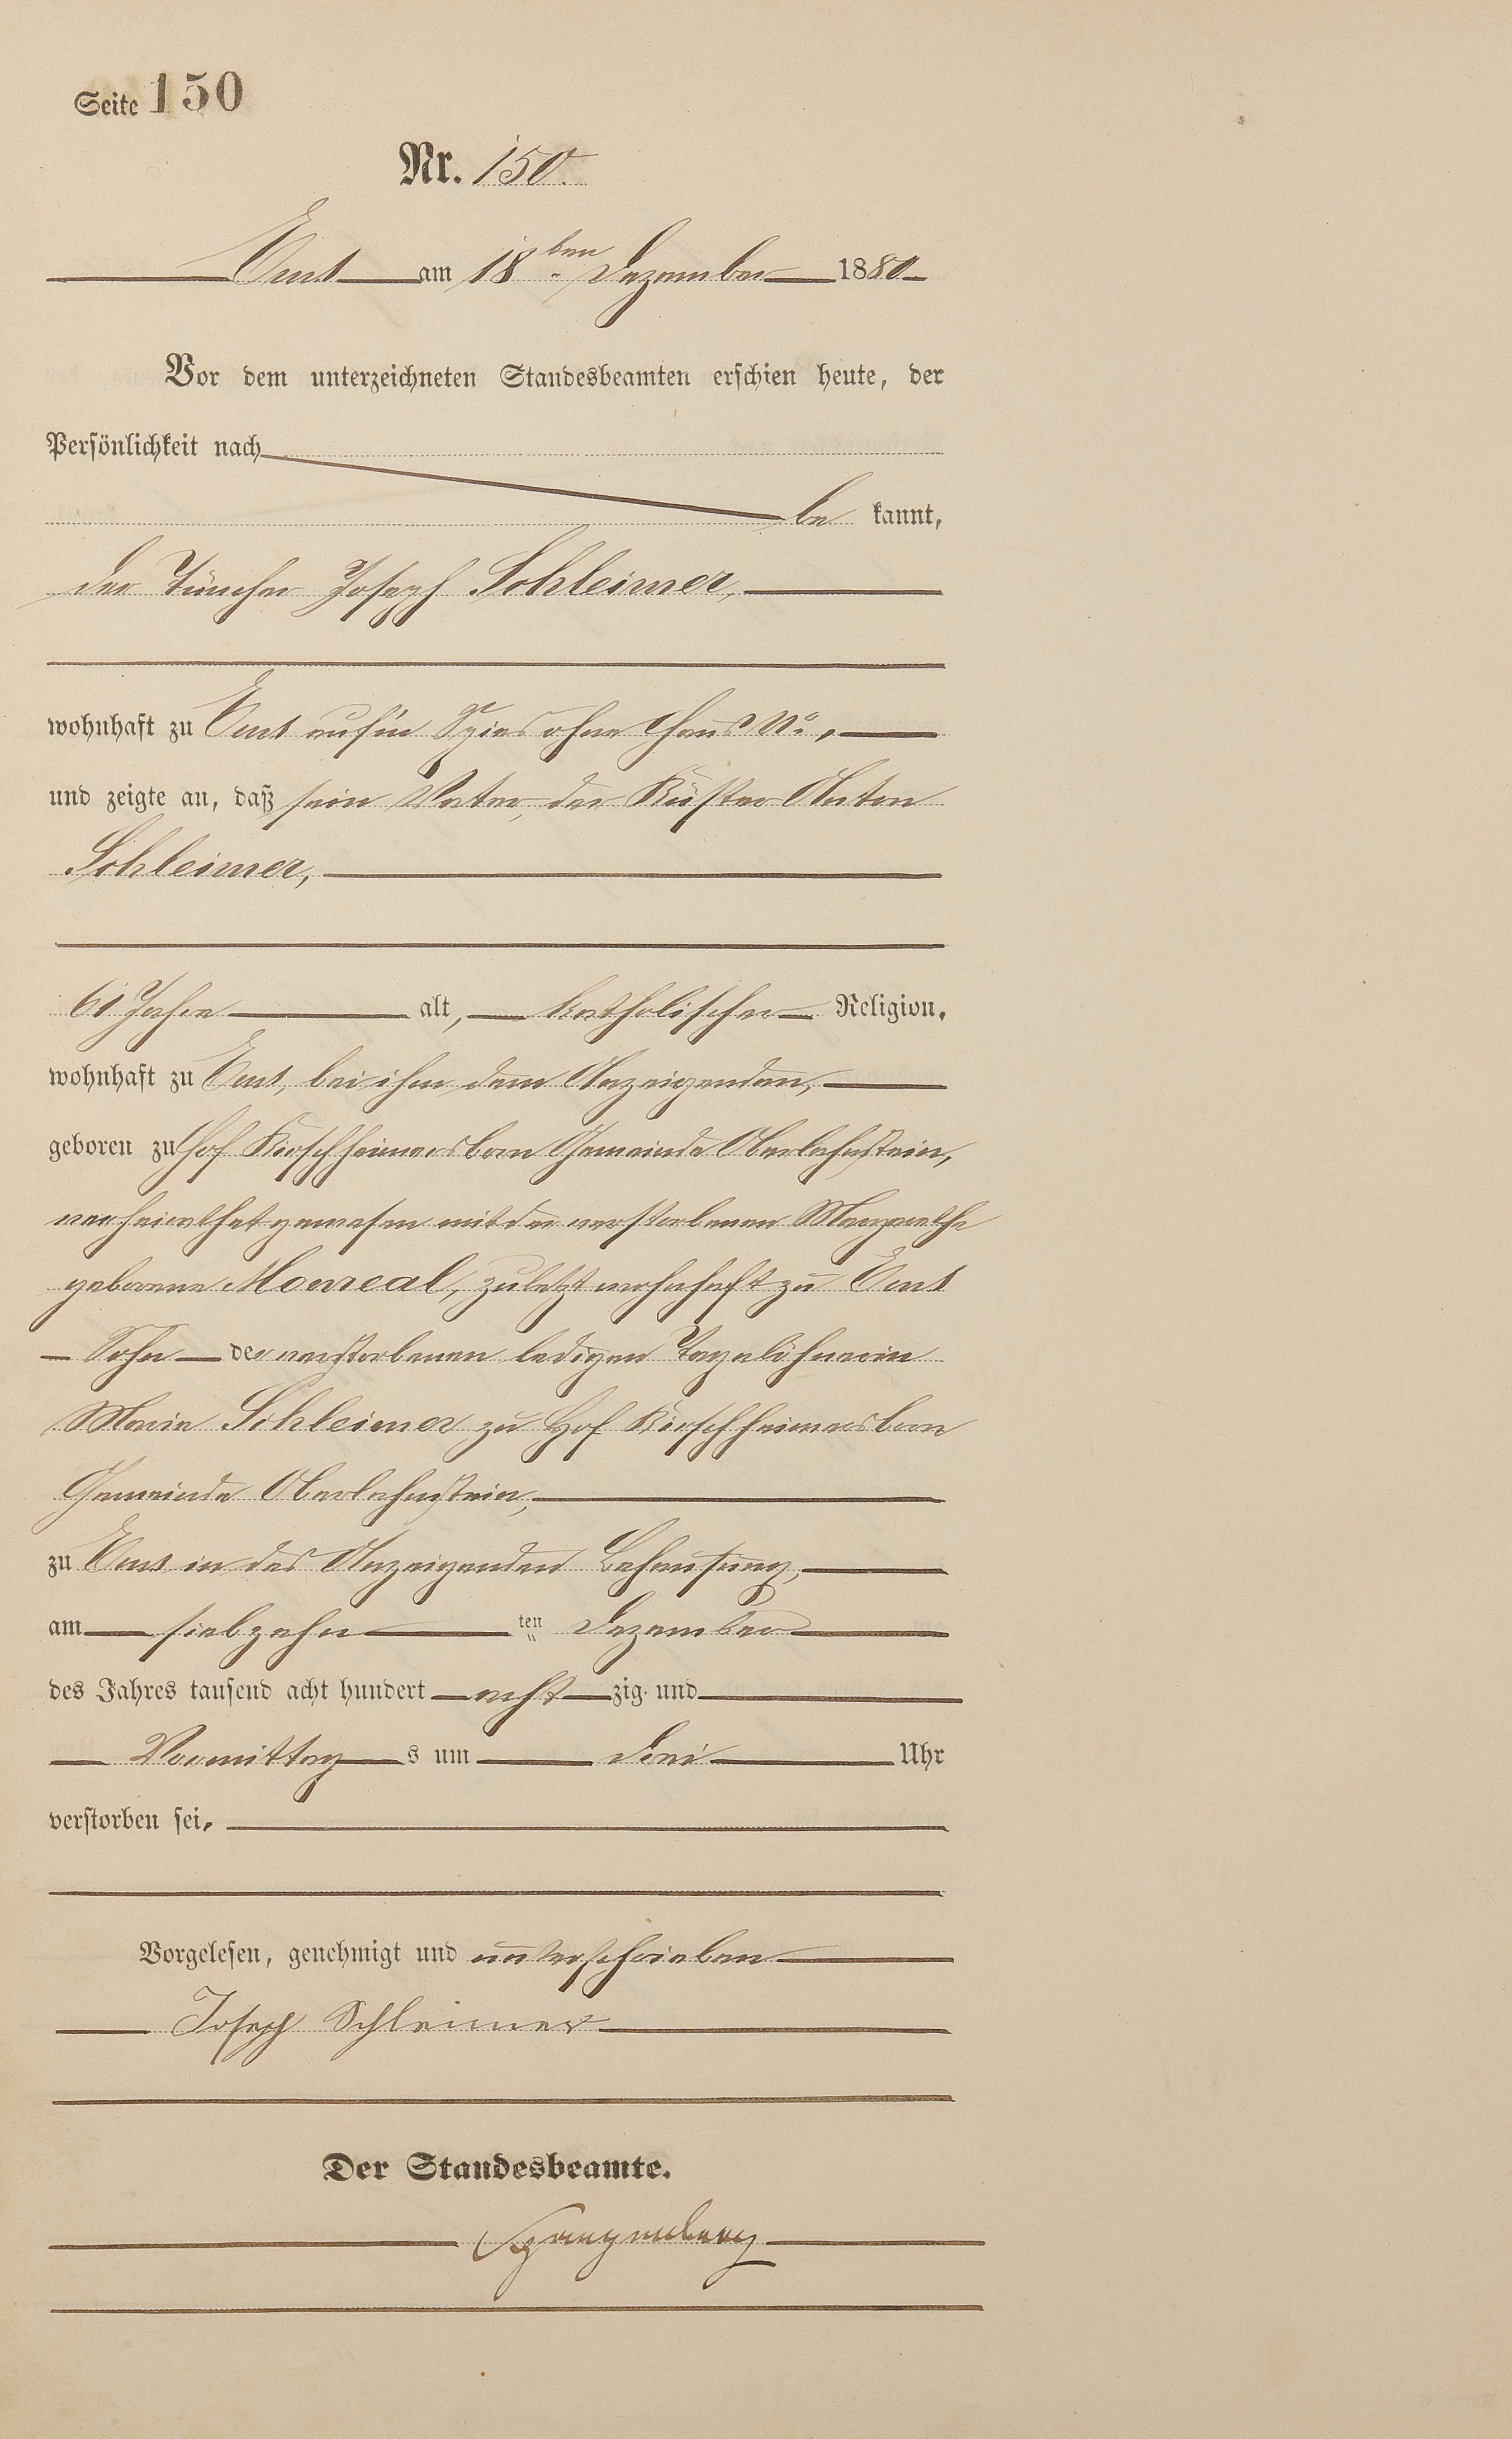 Seite 150
Nr. 150.
Ems am 18ten Dezember 1880
Vor dem unterzeichneten Standesbeamten erschien heute, der
Persönlichkeit nach
be kannt,
der Tüncher Joseph Schleimer,
wohnhaft zu Ems auf'm Spies ohne Haus No.,
und zeigte an, daß sein Vater, der Küster Anton
Schleimer,
61 Jahre alt, katholischer Religion,
wohnhaft zu Ems, bei ihm dem Anzeigenden,
geboren zu Hof Kirschheimersborn Gemeinde Oberlahnstein,
verheirathet gewesen mit der verstorbenen Margarethe
geborene Monreal, zuletzt wohnhaft zu Ems
Sohn der verstorbenen ledigen Tagelöhnerin
Maria Schleimer zu Hof Kirschheimersborn
Gemeinde Oberlahnstein,
zu Ems in des Anzeigenden Behausung,
am siebzehn ten Dezember
des Jahres tausend acht hundert acht zig und
Vormittag s um drei Uhr
verstorben sei.
Vorgelesen, genehmigt und unterschrieben
Joseph Schleimer
Der Standesbeamte.
Spangenberg